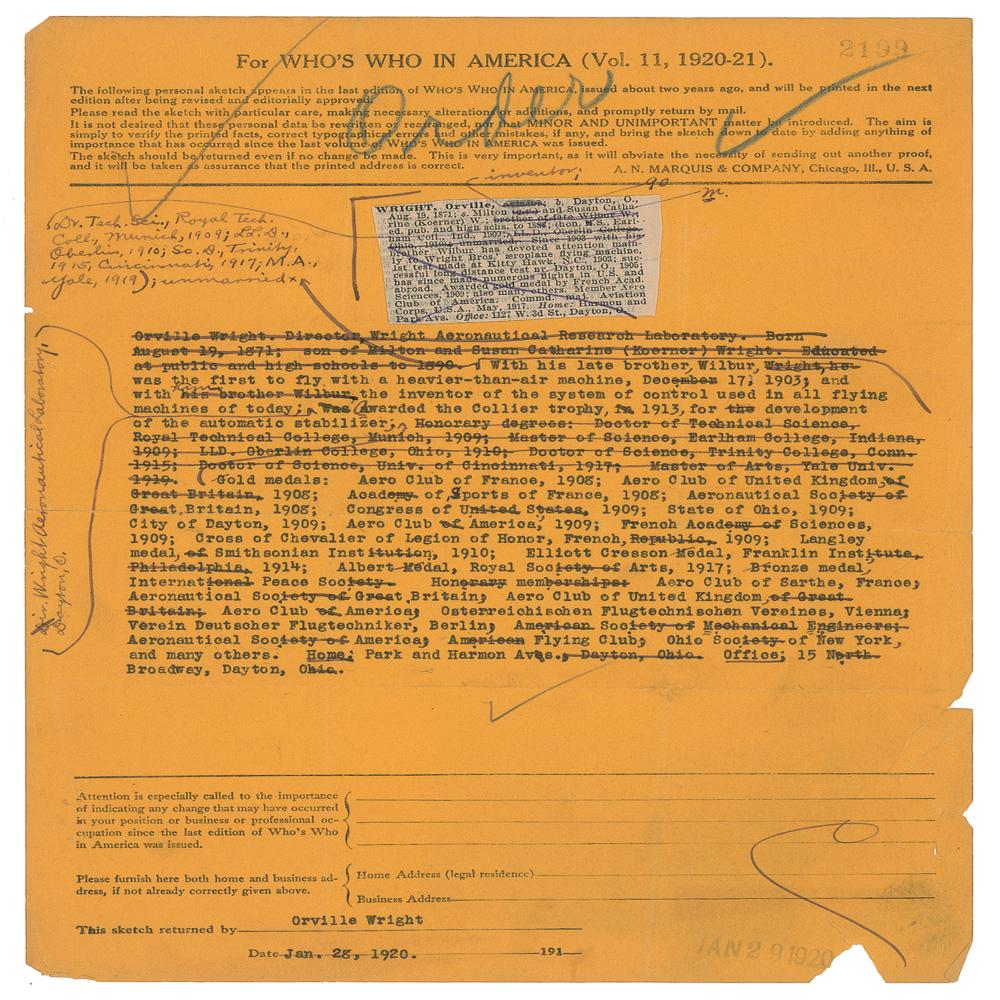 2199
For WHO'S WHO IN AMERICA (Vol. 11, 1920-21).
Order
The following personal sketch appears in the last edition of WHO'S WHO IN AMERICA, issued about two years ago, and will be printed in the next
edition after being revised and editorially approved.
Please read the sketch with particular care, making necessary alterations or additions, and promptly return by mail.
It is not desired that these personal data be rewritten or rearranged, nor that MINOR AND UNIMPORTANT matter be introduced. The aim is
simply to verify the printed facts, correct typographical errors and other mistakes, if any, and bring the sketch down to date by adding anything of
importance that has occurred since the last volume of WHO'S WHO IN AMERICA was issued.
The sketch should be returned even if no change be made. This is very important, as it will obviate the necessity of sending out another proof,
and it will be taken as assurance that the printed address is correct. A. N. MARQUIS & COMPANY, Chicago, Ill., U. S. A.
inventor;
90
m.
(Dr. Tech. Sci., Royal Tech.
Coll., Munich, 1909; LL.D.,
Oberlin, 1910; Sc.D., Trinity,
1915, Cincinnati, 1917; M.A.,
Yale, 1919); unmarried x
WRIGHT, Orville, aviator; b. Dayton, O.,
Aug. 19, 1871; s. Milton and Susan Catha-
rine (Koerner) W.; brother of late Wilbur W.;
ed. pub. and high schs. to 1888; (hon. B.S., Earl-
ham Coll., Ind., 1909; LL.D., Oberlin College,
Ohio, 1910); unmarried. Since 1903 with his
brother Wilbur has devoted attention main-
ly to Wright Bros.' aeroplane flying machine,
1st test made at Kitty Hawk, N.C., 1903; suc-
cessful long distance test nr. Dayton, O., 1905;
has since made numerous flights in U.S. and
abroad. Awarded gold medal by French Acad.
Sciences, 1909; also many others. Member Aero
Club of America. Commd. maj. Aviation
Corps, U.S.A., May, 1917. Home: Harmon and
Park Avs. Office: 1127 W. 3d St., Dayton, O.
Dir. Wright Aeronautical Laboratory,
Dayton, O.
Orville Wright. Director Wright Aeronautical Research Laboratory. Born
August 19, 1871; son of Milton and Susan Catharine (Koerner) Wright. Educated
at public and high schools to 1890. With his late brother, Wilbur, Wright, he
was the first to fly with a heavier-than-air machine, December 17, 1903; and
with his brother Wilbur, the inventor of the system of control used in all flying
machines of today; Was Awarded the Collier trophy, in 1913, for the development
of the automatic stabilizer; Honorary degrees: Doctor of Technical Science,
Royal Technical College, Munich, 1909; Master of Science, Earlham College, Indiana,
1909; LLD. Oberlin College, Ohio, 1910; Doctor of Science, Trinity College, Conn.
1915; Doctor of Science, Univ. of Cincinnati, 1917; Master of Arts, Yale Univ.
1919. Gold medals: Aero Club of France, 1908; Aero Club of United Kingdom, of
Great Britain, 1908; Academy of Sports of France, 1908; Aeronautical Society of
Great Britain, 1908; Congress of United States, 1909; State of Ohio, 1909;
City of Dayton, 1909; Aero Club of America, 1909; French Academy of Sciences,
1909; Cross of Chevalier of Legion of Honor, French, Republic, 1909; Langley
medal, of Smithsonian Institution, 1910; Elliott Cresson Medal, Franklin Institute,
Philadelphia, 1914; Albert Medal, Royal Society of Arts, 1917; Bronze medal,
International Peace Society. Honorary memberships: Aero Club of Sarthe, France;
Aeronautical Society of Great Britain; Aero Club of United Kingdom, of Great
Britain; Aero Club of America; Osterreichischen Flugtechnischen Vereines, Vienna;
Verein Deutscher Flugtechniker, Berlin; American Society of Mechanical Engineers;
Aeronautical Society of America; American Flying Club; Ohio Society of New York,
and many others. Home: Park and Harmon Aves., Dayton, Ohio. Office; 15 North
Broadway, Dayton, Ohio.
Attention is especially called to the importance
of indicating any change that may have occurred
in your position or business or professional oc-
cupation since the last edition of Who's Who
in America was issued.
Please furnish here both home and business ad-
dress, if not already correctly given above.
Home Address (legal residence)
Business Address
This sketch returned by Orville Wright
Date Jan. 28, 1920. 191
JAN 29 1920